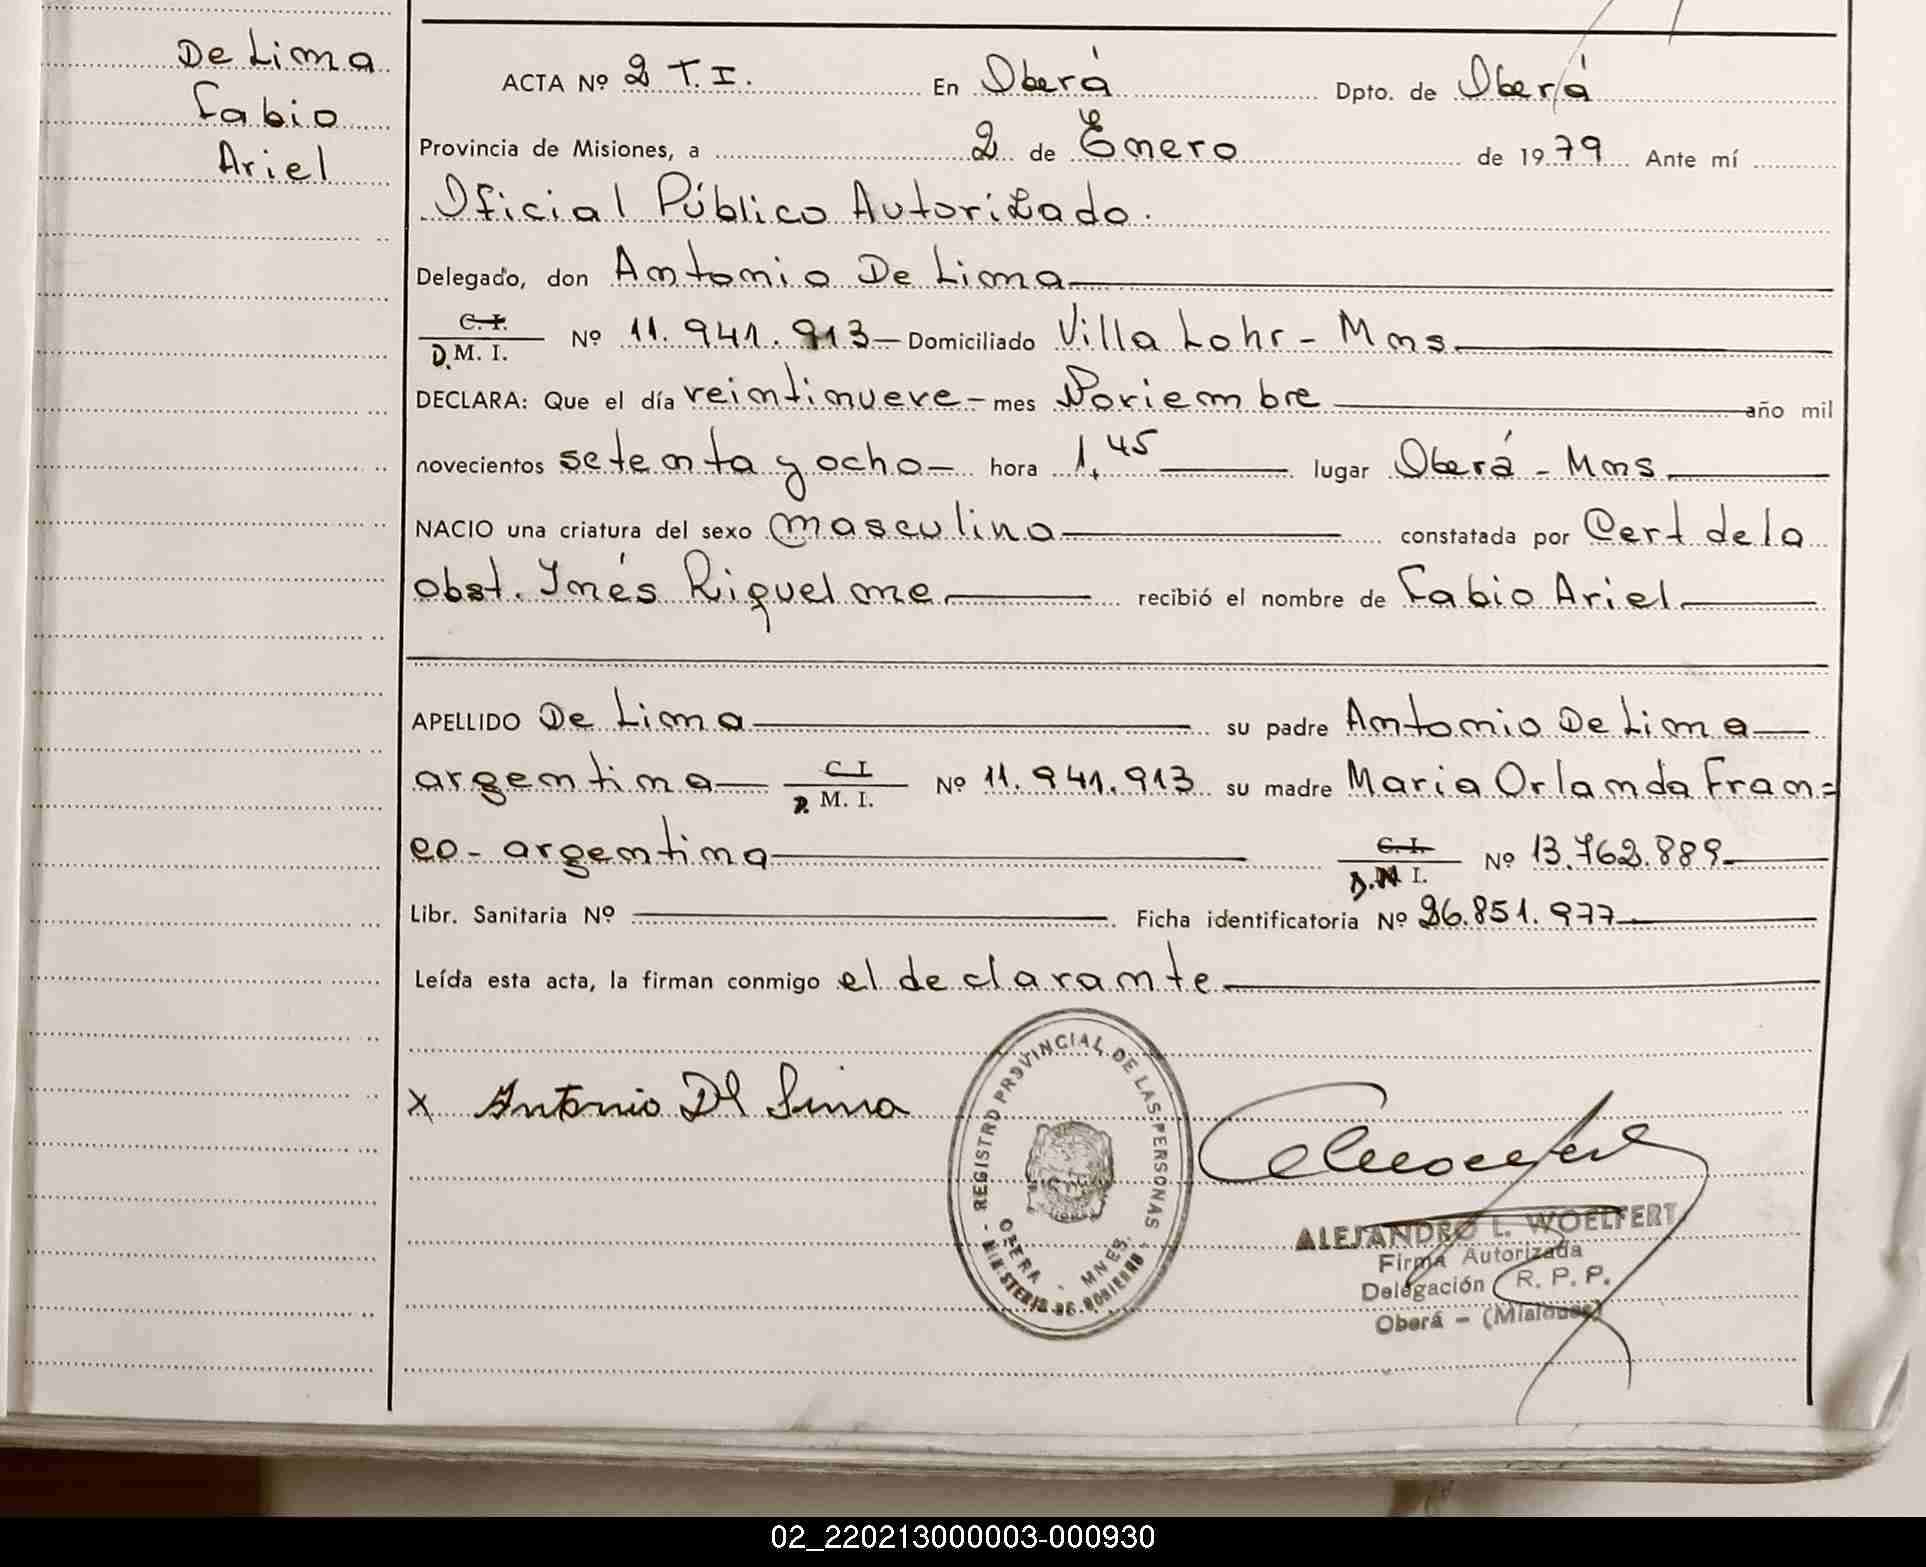 De Lima
Fabio
Ariel
ACTA Nº 2 T.I. En Oberá Dpto. de Oberá
Provincia de Misiones, a 2 de Enero de 1979 Ante mí
Oficial Público Autorizado.
Delegado, don Antonio De Lima
C.I.
D.M.I. Nº 11.941.913 - Domiciliado Villa Lohr - Mns
DECLARA: Que el día veintinueve - mes Noviembre año mil
novecientos setenta y ocho - hora 1,45 lugar Oberá - Mns
NACIO una criatura del sexo masculino constatada por Cert de la
obst. Inés Riquelme recibió el nombre de Fabio Ariel
APELLIDO De Lima su padre Antonio De Lima
argentina C I
D. M. I. Nº 11.941.913 su madre Maria Orlanda Fran=
co - argentina C.I.
D.N I. Nº 13.762.889
Libr. Sanitaria Nº Ficha identificatoria Nº 26.851.977
Leída esta acta, la firman conmigo el declarante
x Antonio De Lima
REGISTRO PROVINCIAL DE LAS PERSONAS
OBERA - MNES.
MINISTERIO DE GOBIERNO
ALEJANDRO L. WOELFERT
Firma Autorizada
Delegación R. P. P.
Oberá - (Misiones)
02_220213000003-000930